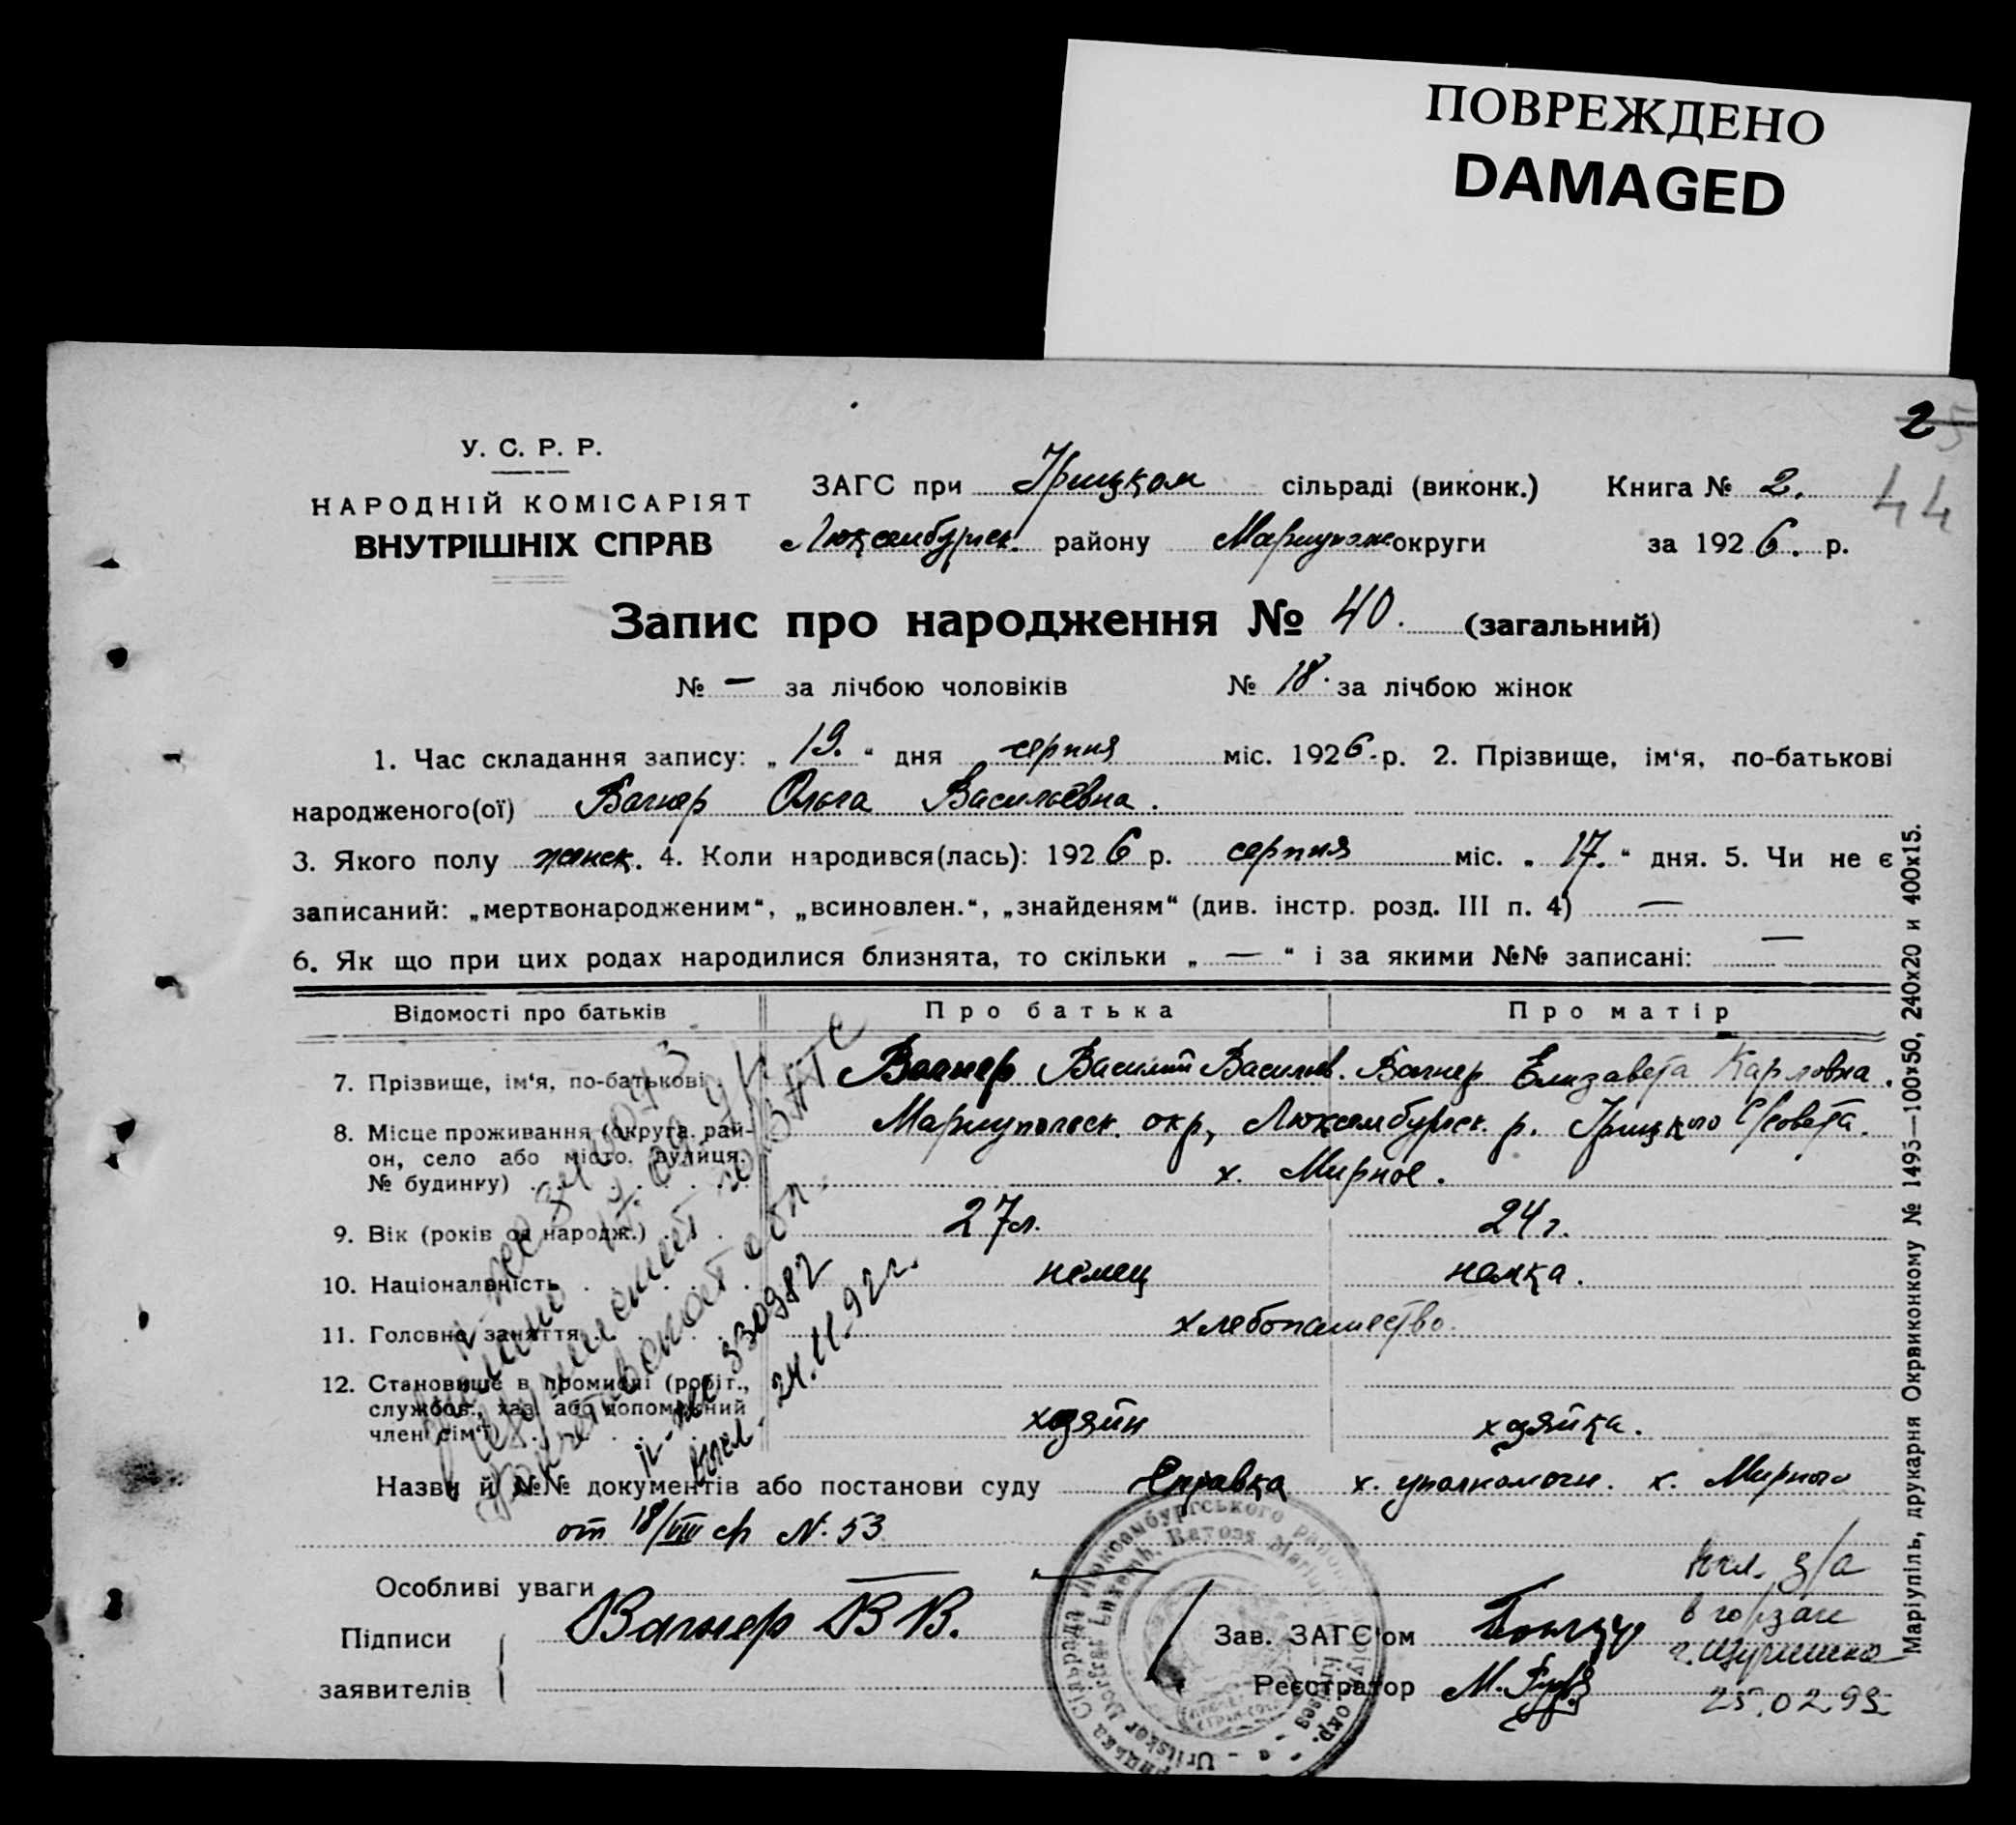 ПОВРЕЖДЕНО
DAMAGED
2
44
У. С. Р. Р.
НАРОДНІЙ КОМІСАРІЯТ
ВНУТРІШНІХ СПРАВ
ЗАГС при Урицком сільраді (виконк.) Книга № 2.
Люксембургск. району Мариупольск округи за 1926. р.
Запис про народження № 40. (загальний)
№ — за лічбою чоловіків № 18. за лічбою жінок
1. Час складання запису: „19.“ дня серпня міс. 1926.р. 2. Прізвище, ім‘я, по-батькові
народженого(ої) Вагнер Ольга Васильевна.
3. Якого полу женск. 4. Коли народився(лась): 1926 р. серпня міс. „17.“ дня. 5. Чи не є
записаний: „мертвонародженим“, „всиновлен.“, „знайденям“ (див. інстр. розд. III п. 4) —
6. Як що при цих родах народилися близнята, то скільки „—“ і за якими №№ записані: —
Відомості про батьків Про батька Про матір
7. Прізвище, ім‘я, по-батькові Вагнер Василий Васильев. Вагнер Елизавета Карловна.
8. Місце проживання (округа, рай-
он, село або місто, вулиця,
№ будинку)
Мариупольск. окр, Люксембургск. р. Урицкого С/совета.
х. Мирное.
9. Вік (років од народж.) 27л. 24г.
10. Національність немец немка.
11. Головне заняття хлебопашество.
12. Становище в промислі (робіт.,
службов., хаз. або допоміжний
член сім‘ї)
хозяин хозяйка.
330982
24.11.92г.
Назви й №№ документів або постанови суду Справка х. уполномочн. х. Мирного
от 18/VIII ср N. 53
Особливі уваги — —
Підписи
заявителів
Вагнер В В.
Зав. ЗАГС‘ом
Реєстратор М.
з/а
25.02.93
Маріупіль, друкарня Окрвиконкому № 1495—100×50, 240x20 и 400x15.